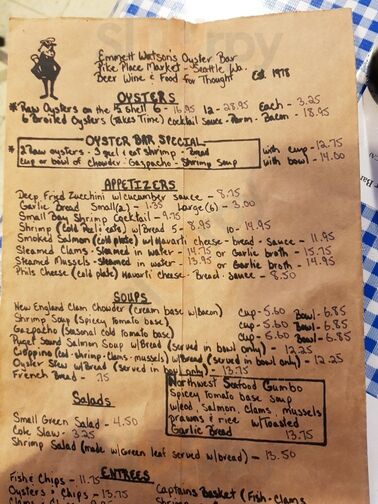 Emmett Watson's Oyster Bar
Pike Place Market - Seattle Wa.
Beer Wine & Food for Thought Est. 1978
OYSTERS
* Raw Oysters on the ½ shell 6 - 16.95 12 - 28.95 Each - 3.25
6 Broiled Oysters (Takes Time) Cocktail Sauce - Parm - Bacon - 18.95
OYSTER BAR SPECIAL
* 2 Raw oysters - 3 peel & eat Shrimp - Bread with cup - 12.75
cup or bowl of chowder - Gazpacho - Shrimp Soup with bowl - 14.00
APPETIZERS
Deep Fried Zucchini w/cucumber sauce - 8.75
Garlic Bread Small(2) - 1.35 Large(6) - 3.00
Small Bay Shrimp Cocktail - 9.75
Shrimp (cold peel & eat) w/Bread 5 - 8.95 10 - 14.95
Smoked Salmon (cold plate) w/Havarti cheese - bread - sauce - 11.95
Steamed Clams - steamed in water - 14.75 or Garlic broth - 15.75
Steamed Mussels - steamed in water - 13.95 or Garlic broth - 14.95
Phils Cheese (cold plate) Havarti cheese - Bread - Sauce - 8.50
SOUPS
New England Clam Chowder (cream base w/Bacon) Cup - 5.60 Bowl - 6.85
Shrimp Soup (Spicey Tomato base) Cup - 5.60 Bowl - 6.85
Gazpacho (Seasonal cold Tomato base) Cup - 5.60 Bowl - 6.85
Puget Sound Salmon Soup w/Bread (served in bowl only) - 12.25
Cioppino (cod - shrimp - clams - mussels) w/Bread (served in bowl only) - 12.25
Oyster Stew w/Bread (served in bowl only) - 13.75
French Bread - .75
Northwest Seafood Gumbo
Spicey Tomato base soup
w/cod, salmon, clams, mussels
prawns & rice w/Toasted
Garlic Bread 13.75
Salads
Small Green Salad - 4.50
Cole Slaw - 3.25
Shrimp Salad (made w/Green leaf served w/bread) - 13.50
ENTREES
Fish & Chips - 11.75
Oysters & Chips - 13.75 Captains Basket (Fish - Clams